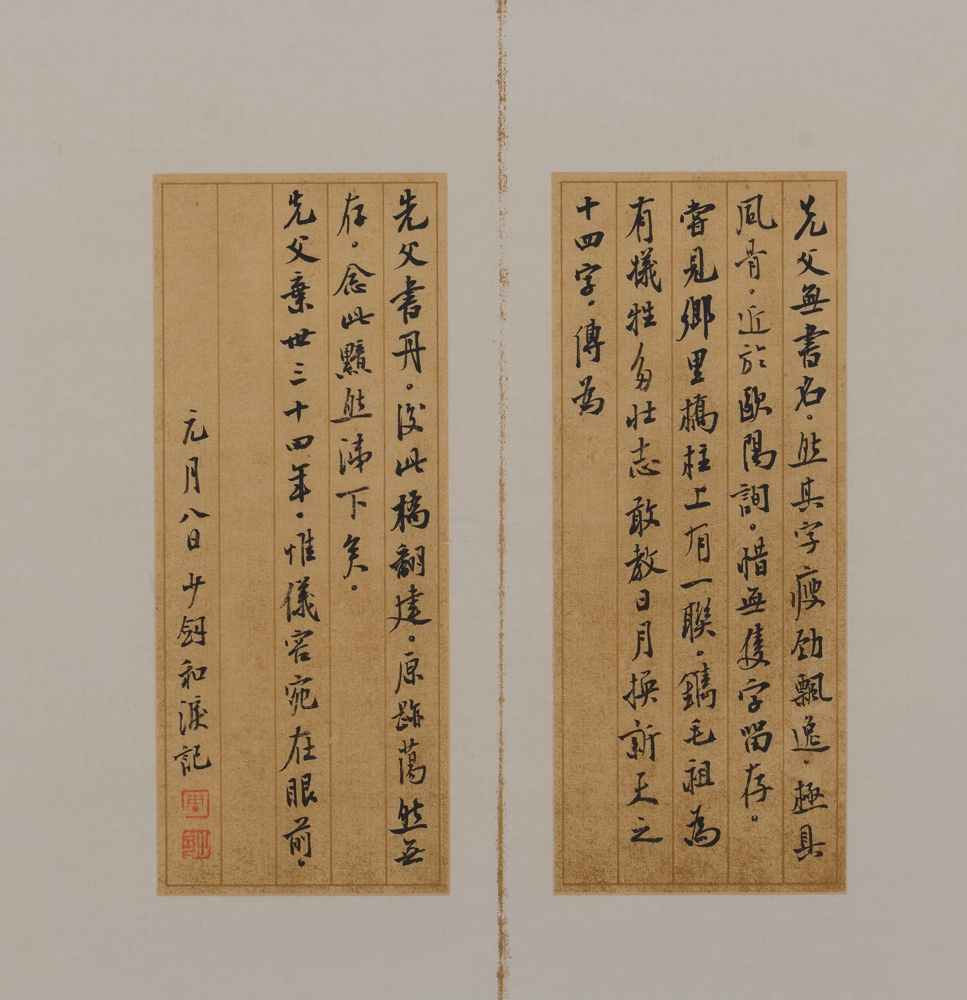 先父無書名。然其字瘦勁飄逸。極具
風骨。近於歐陽詢。惜無隻字留存。
嘗見鄉里橋柱上有一聯。鐫毛祖為
有犧牲多壯志敢教日月換新天之
十四字。傳為
先父書丹。後此橋翻建。原跡蕩然無
存。念此黯然涕下矣。
先父棄世三十四年。惟儀容宛在眼前。
元月八日少鈞和淚記